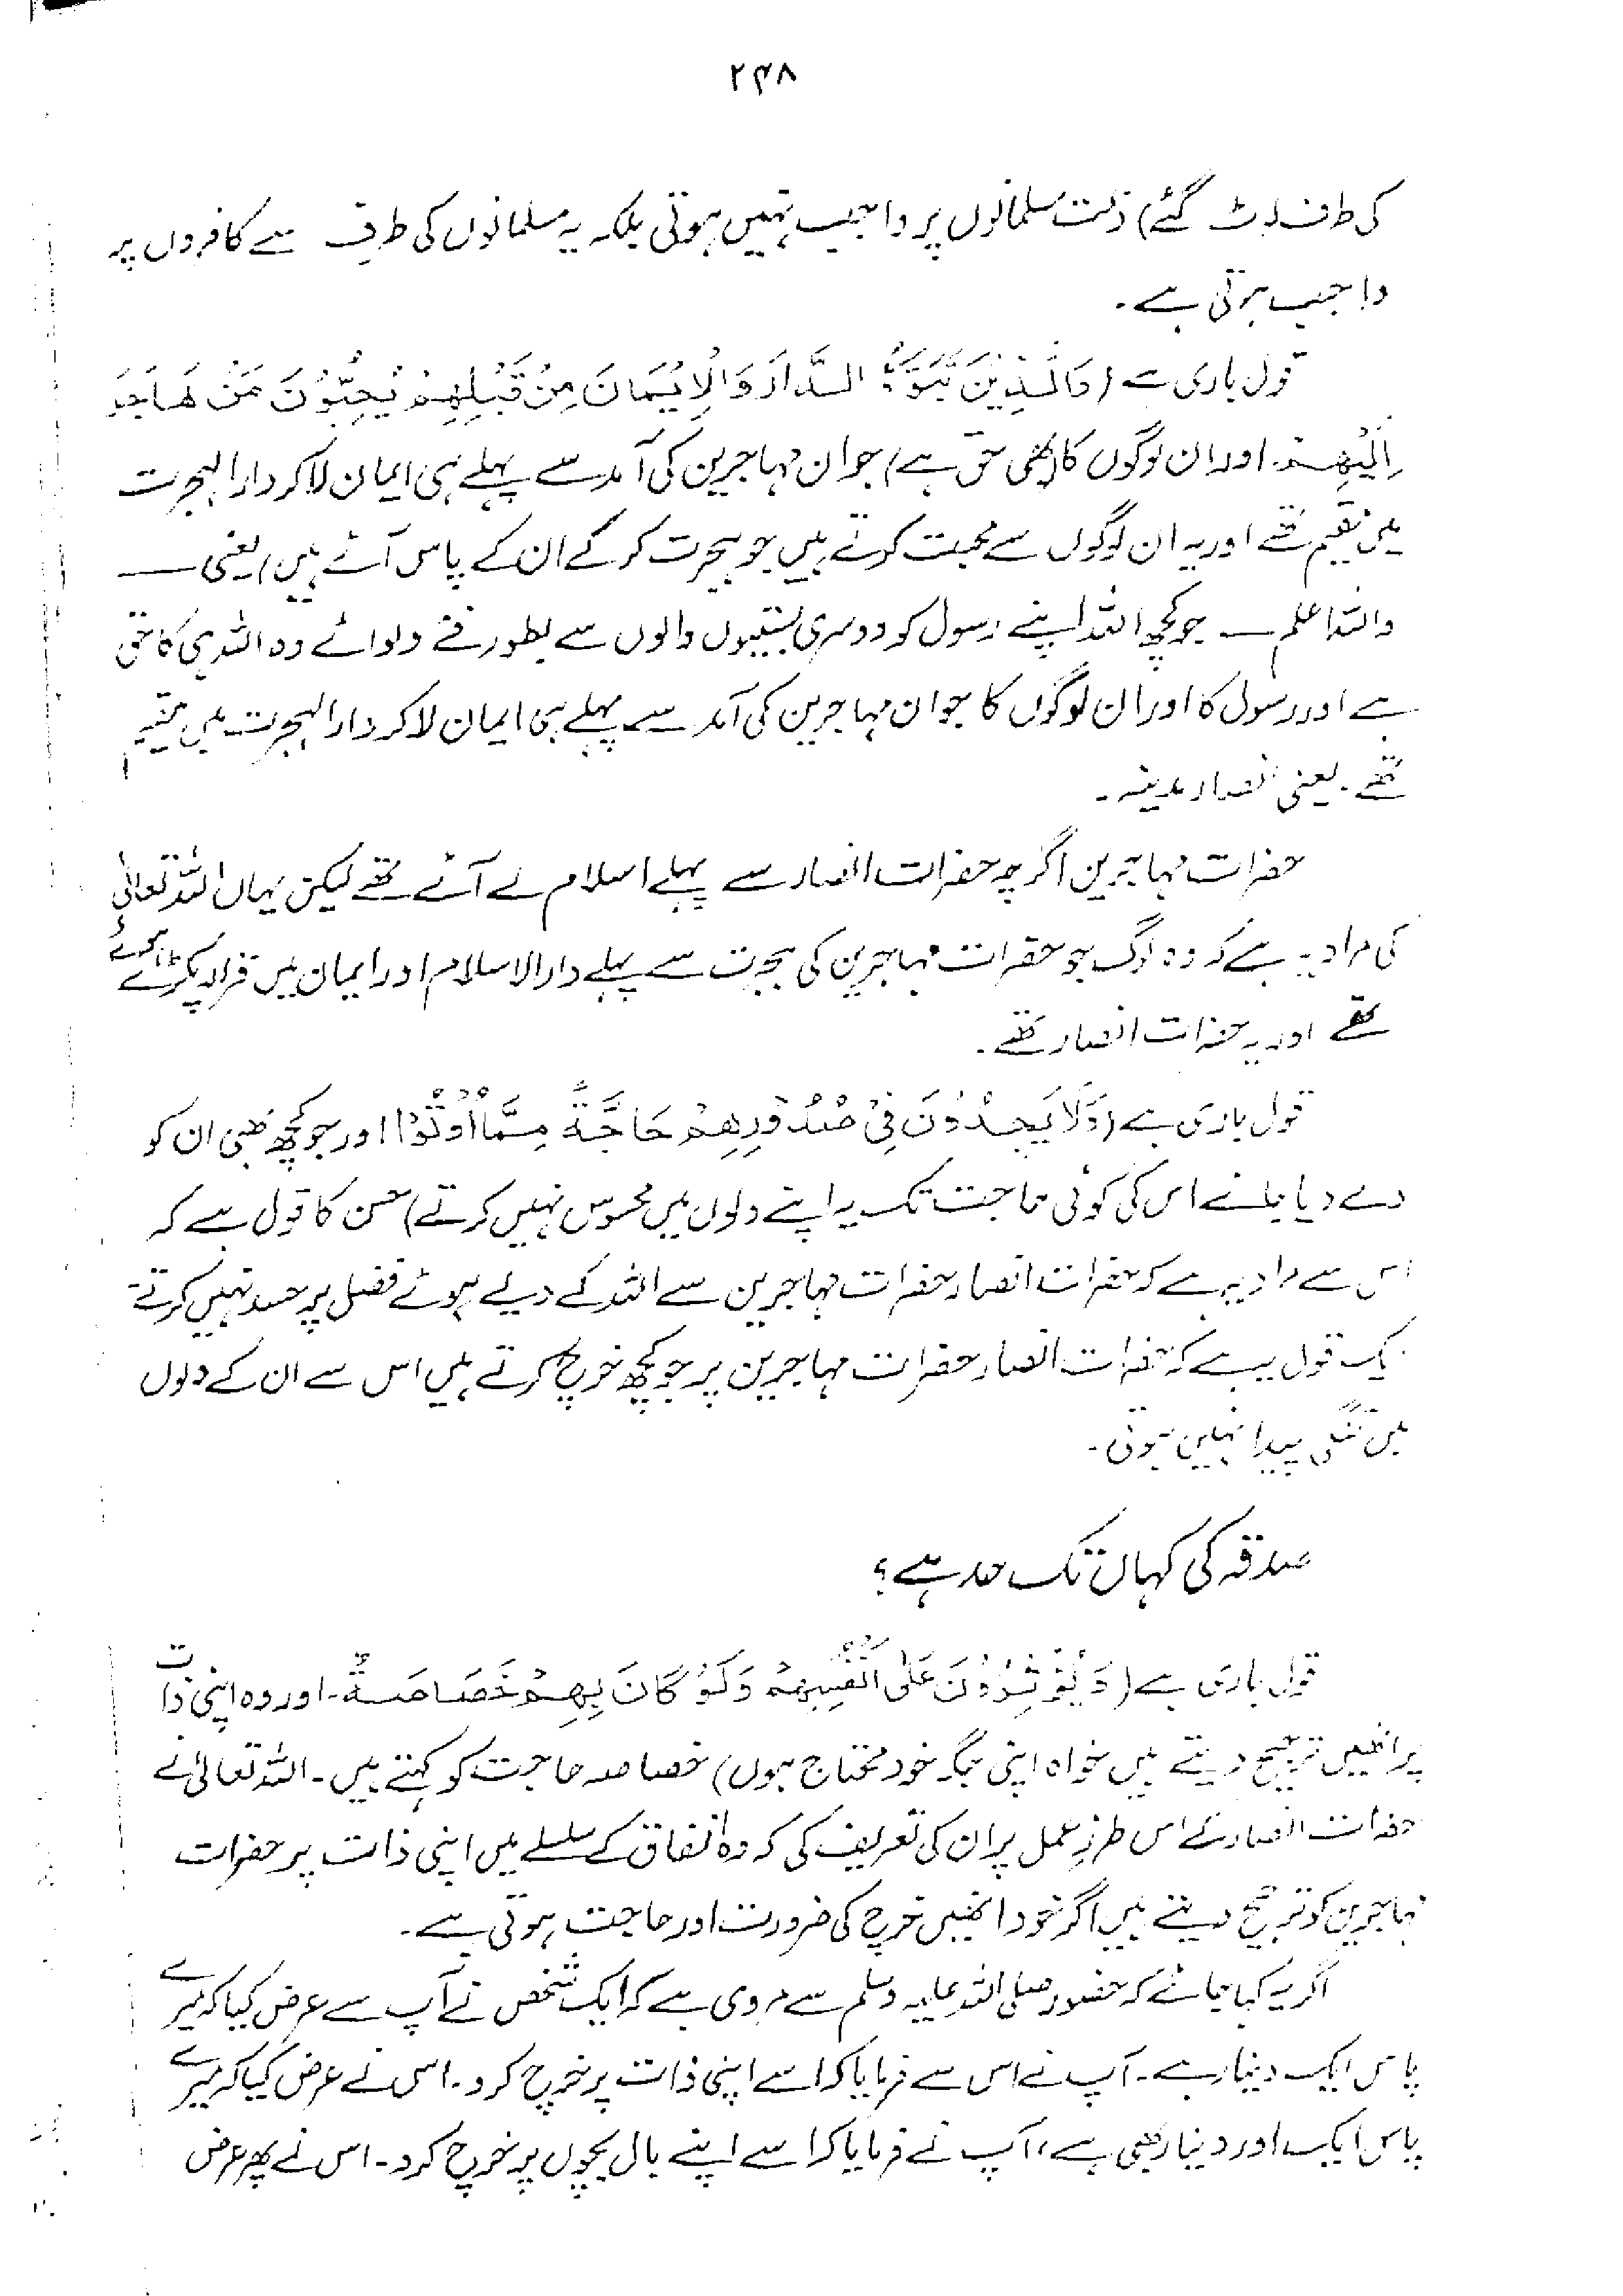 ۲۴۸
کی طرف لوٹ گئے) ذلت مسلمانوں پر واجب نہیں ہوتی بلکہ یہ مسلمانوں کی طرف سے کافروں پر
واجب ہوتی ہے۔
قول باری ہے (وَالَّذِيْنَ تَبَوَّؤُ الدَّارَ وَالْاِيْمَانَ مِنْ قَبْلِهِمْ يُحِبُّوْنَ مَنْ هَاجَرَ
اِلَيْهِمْ۔ اور ان لوگوں کا (بھی حق ہے) جو ان مہاجرین کی آمد سے پہلے ہی ایمان لا کر دارالہجرت
میں مقیم تھے اور یہ ان لوگوں سے محبت کرتے ہیں جو ہجرت کر کے ان کے پاس آئے ہیں) یعنی ــــ
واللہ اعلم ــــ جو کچھ اللہ اپنے رسول کو دوسری بستیوں والوں سے بطور فے دلوائے وہ اللہ ہی کا حق
ہے اور رسول کا اور ان لوگوں کا جو ان مہاجرین کی آمد سے پہلے ہی ایمان لا کر دارالہجرت میں مقیم
تھے۔ یعنی انصار مدینہ۔
حضرات مہاجرین اگرچہ حضرات انصار سے پہلے اسلام لے آئے تھے لیکن یہاں اللہ تعالیٰ
کی مراد یہ ہے کہ وہ لوگ جو حضرات مہاجرین کی ہجرت سے پہلے دارالاسلام اور ایمان میں قرار پکڑے ہوئے
تھے اور یہ حضرات انصار تھے۔
قول باری ہے (وَلَا يَجِدُوْنَ فِيْ صُدُوْرِهِمْ حَاجَةً مِّمَّا اُوْتُوْا اور جو کچھ بھی ان کو
دے دیا جائے اس کی کوئی حاجت تک یہ اپنے دلوں میں محسوس نہیں کرتے) حسن کا قول ہے کہ
اس سے مراد یہ ہے کہ حضرات انصار حضرات مہاجرین سے اللہ کے دیے ہوئے فضل پر حسد نہیں کرتے۔
ایک قول یہ ہے کہ حضرات انصار حضرات مہاجرین پر جو کچھ خرچ کرتے ہیں اس سے ان کے دلوں
میں تنگی پیدا نہیں ہوتی۔
صدقہ کی کہاں تک حد ہے؟
قول باری ہے (وَيُؤْثِرُوْنَ عَلٰى اَنْفُسِهِمْ وَلَوْ كَانَ بِهِمْ خَصَاصَةٌ۔ اور وہ اپنی ذات
پر انھیں ترجیح دیتے ہیں خواہ اپنی جگہ خود محتاج ہوں) خصاصہ حاجت کو کہتے ہیں۔ اللہ تعالیٰ نے
حضرات انصار کے اس طرزِ عمل پر ان کی تعریف کی کہ وہ انفاق کے سلسلے میں اپنی ذات پر حضرات
مہاجرین کو ترجیح دیتے ہیں اگر خود انھیں خرچ کی ضرورت اور حاجت ہوتی ہے۔
اگر یہ کہا جائے کہ حضور صلی اللہ علیہ وسلم سے مروی ہے کہ ایک شخص نے آپ سے عرض کیا کہ میرے
پاس ایک دینار ہے۔ آپ نے اس سے فرمایا کہ اسے اپنی ذات پر خرچ کرو۔ اس نے عرض کیا کہ میرے
پاس ایک اور دینار بھی ہے، آپ نے فرمایا کہ اسے اپنے بال بچوں پر خرچ کرو۔ اس نے پھر عرض